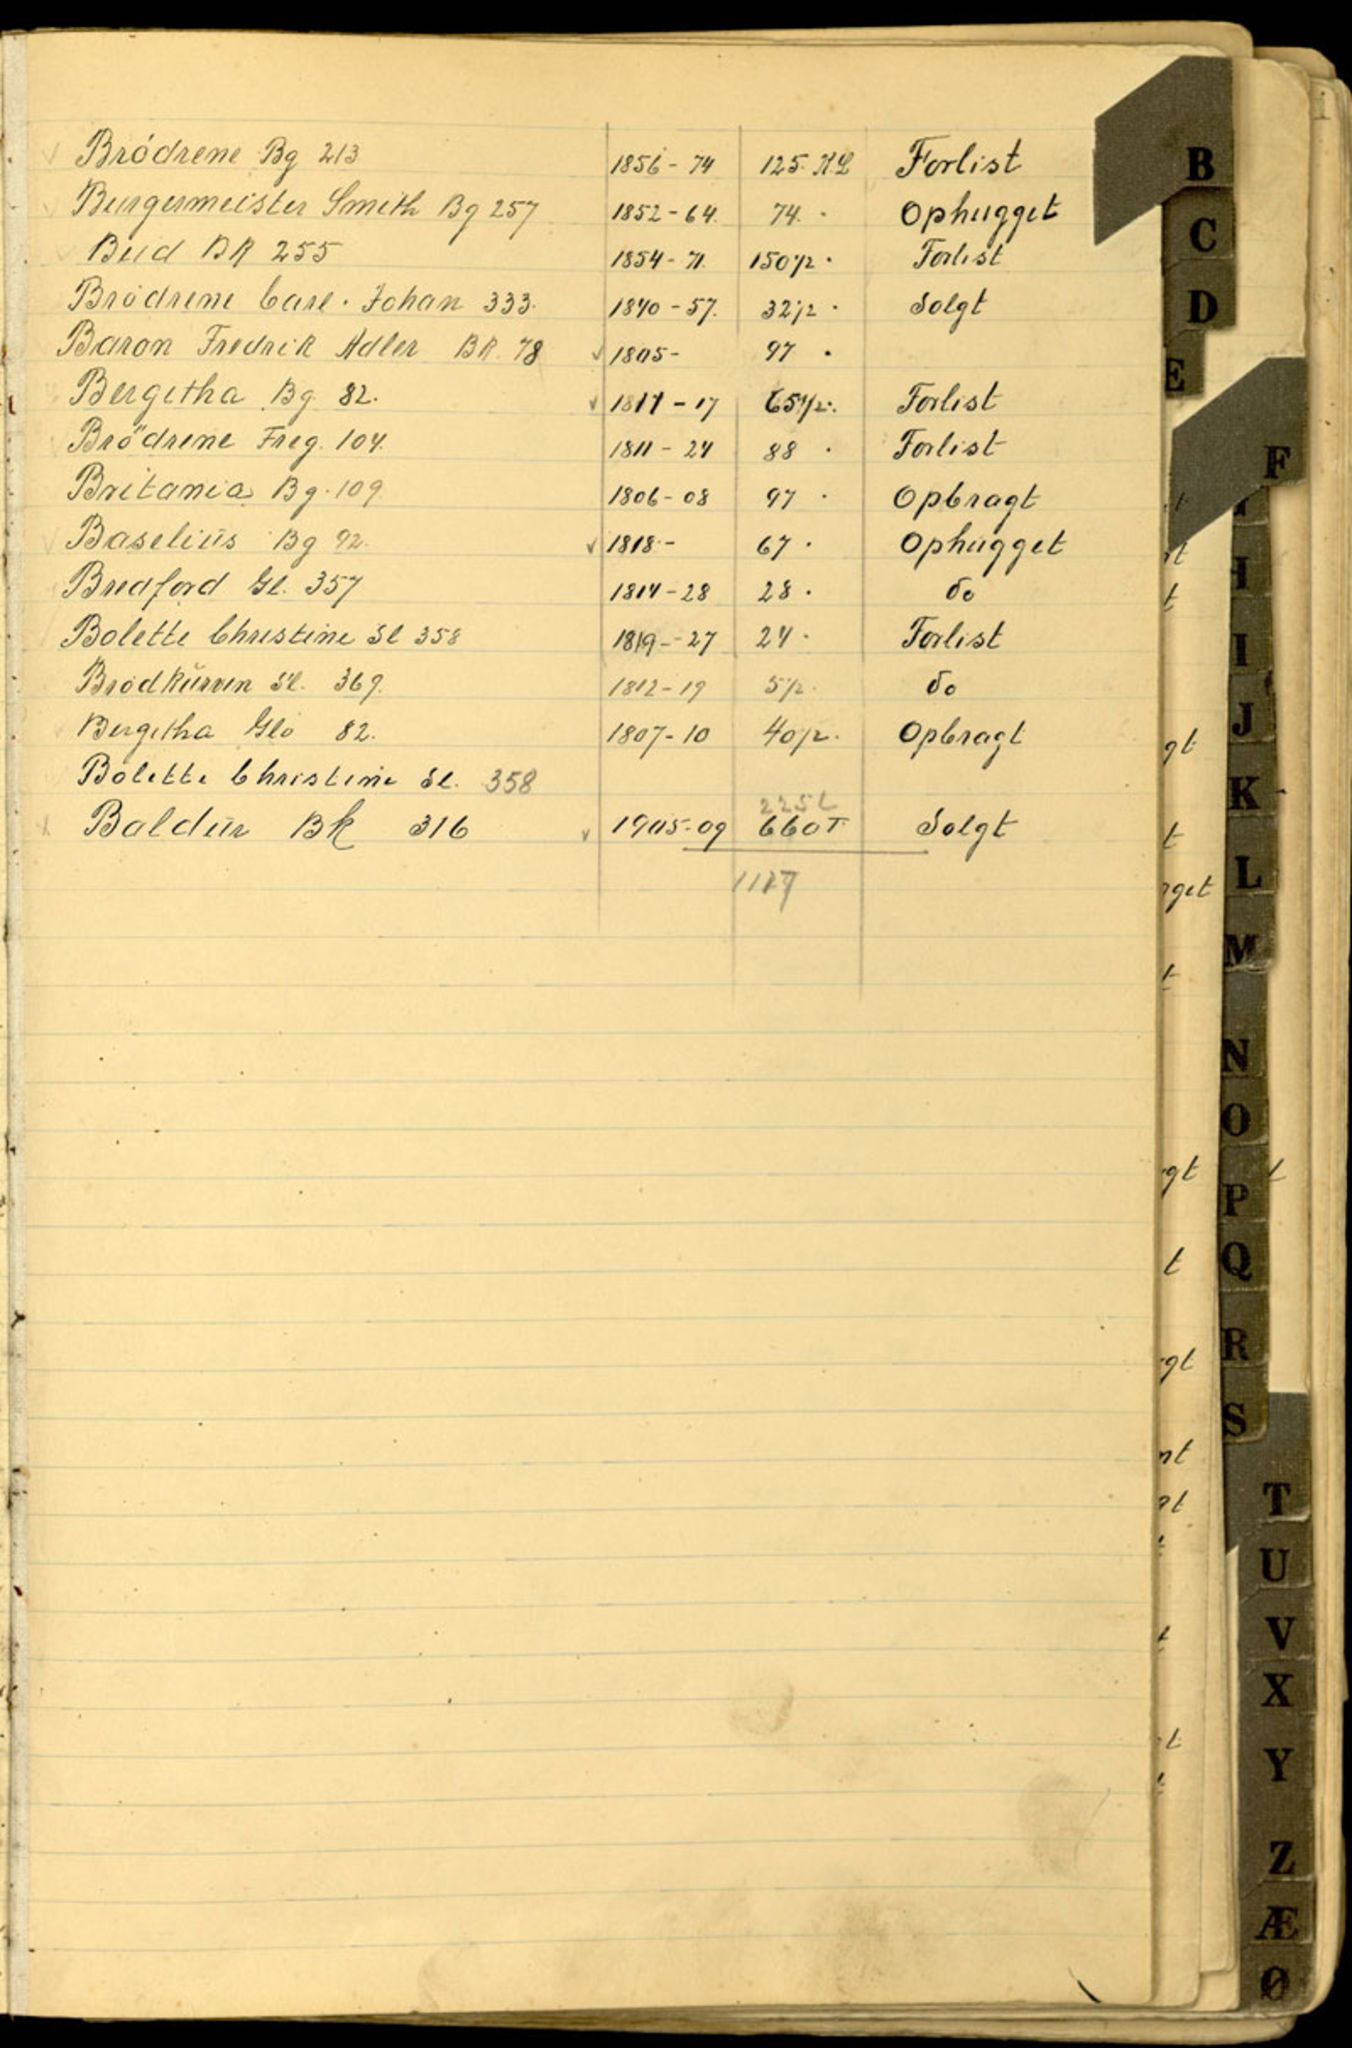 Brödrene Bg 213 1856-74 125. K.L Forlist
Burgermeister Smith Bg 257 1852-64. 74. Ophugget
Bud BK 255 1854-71. 150 1/2 Forlist
Brödrene Carl. Johan 333. 1840-57. 32 1/2 Solgt
Baron Fredrik Adler BK. 78 1805- 97
Bergitha Bg 82. -17 65 1/2 Forlist
Brödrene Freg. 104. 1811-24 88 Forlist
Britania Bg. 109. 1806-08 97 Opbragt
Baselius Bg 92. 1818- 67 Ophugget
Bradford Gl. 357 1814-28 28 do
Bolette Christine Sl 358 1819-27 24 Forlist
Brödkurven Sl. 369. 1812-19 5 1/2 do
Bergitha Glö 82. 1807-10 40 1/2 Opbragt
Bolette Christine Sl. 358
225 L
Baldur Bk 316 1905-09 660T Solgt
B
C
D
E
F
H
I
J
K
L
M
N
O
P
Q
R
S
T
U
V
X
Y
Z
Æ
Ø